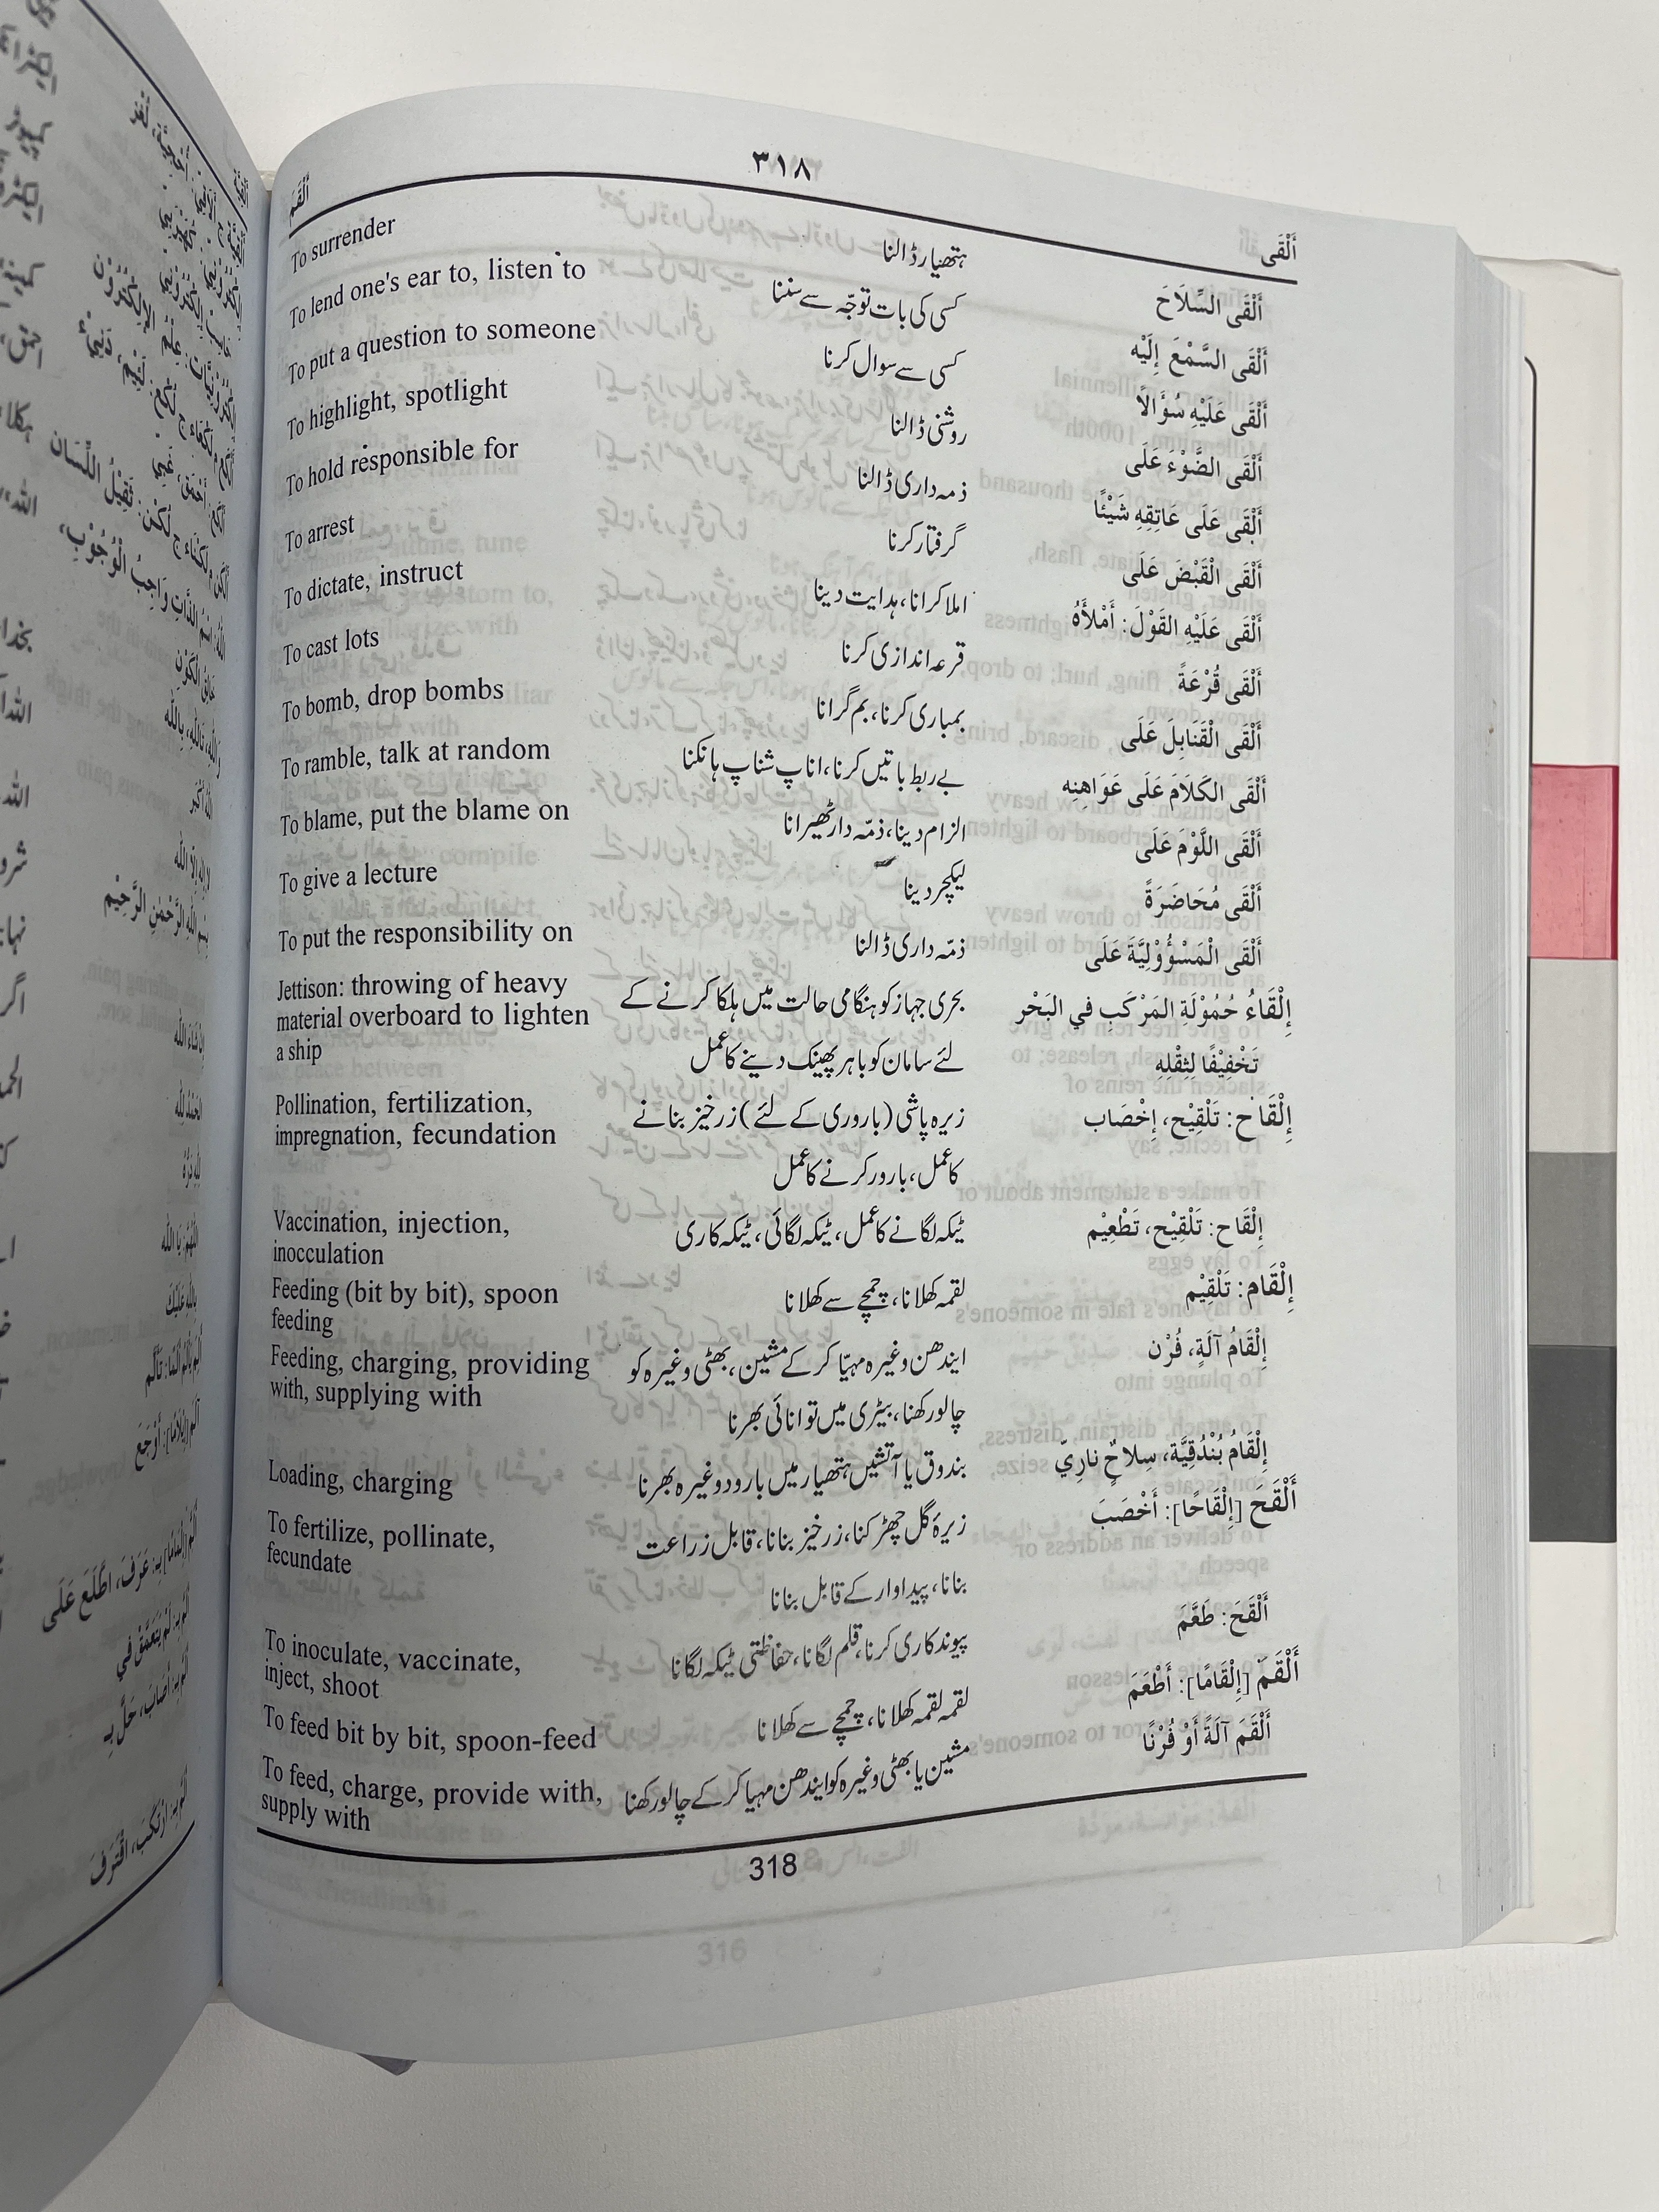 ٣١٨
أَلْقَى
أَلْقَمَ
أَلْقَى السِّلَاحَ
ہتھیار ڈالنا
To surrender
أَلْقَى السَّمْعَ إِلَيْه
کسی کی بات توجّہ سے سننا
To lend one's ear to, listen to
أَلْقَى عَلَيْهِ سُؤَالًا
کسی سے سوال کرنا
To put a question to someone
أَلْقَى الضَّوْءَ عَلَى
روشنی ڈالنا
To highlight, spotlight
أَلْقَى عَلَى عَاتِقِهِ شَيْئًا
ذمہ داری ڈالنا
To hold responsible for
أَلْقَى الْقَبْضَ عَلَى
گرفتار کرنا
To arrest
أَلْقَى عَلَيْهِ القَوْلَ: أَمْلأَهُ
املا کرانا، ہدایت دینا
To dictate, instruct
أَلْقَى قُرْعَةً
قرعہ اندازی کرنا
To cast lots
أَلْقَى الْقَنَابِلَ عَلَى
بمباری کرنا، بم گرانا
To bomb, drop bombs
أَلْقَى الكَلَامَ عَلَى عَوَاهِنِه
بے ربط باتیں کرنا، اناپ شناپ ہانکنا
To ramble, talk at random
أَلْقَى اللَّوْمَ عَلَى
الزام دینا، ذمّہ دار ٹھیرانا
To blame, put the blame on
أَلْقَى مُحَاضَرَةً
لیکچر دینا
To give a lecture
أَلْقَى الْمَسْؤُوْلِيَّةَ عَلَى
ذمّہ داری ڈالنا
To put the responsibility on
إِلْقَاءُ حُمُوْلَةِ المَرْكَبِ في البَحْر
تَخْفِيْفًا لِثِقْلِهِ
بحری جہاز کو ہنگامی حالت میں ہلکا کرنے کے
لئے سامان کو باہر پھینک دینے کا عمل
Jettison: throwing of heavy
material overboard to lighten
a ship
إِلْقَاح: تَلْقِيْح، إِخْصَاب
زیرہ پاشی (باروری کے لئے) زرخیز بنانے
کا عمل، بارور کرنے کا عمل
Pollination, fertilization,
impregnation, fecundation
إِلْقَاح: تَلْقِيْح، تَطْعِيْم
ٹیکہ لگانے کا عمل، ٹیکہ لگائی، ٹیکہ کاری
Vaccination, injection,
inocculation
إِلْقَام: تَلْقِيْم
لقمہ کھلانا، چمچے سے کھلانا
Feeding (bit by bit), spoon
feeding
إِلْقَامُ آلَةٍ، فُرْن
ایندھن وغیرہ مہیّا کر کے مشین، بھٹی وغیرہ کو
چالو رکھنا، بیٹری میں توانائی بھرنا
Feeding, charging, providing
with, supplying with
إِلْقَامُ بُنْدُقِيَّة، سِلاحٌ نارِيّ
بندوق یا آتشیں ہتھیار میں بارود وغیرہ بھرنا
Loading, charging
أَلْقَحَ [إِلْقَاحًا]: أَخْصَبَ
زیرۂ گل چھڑکنا، زرخیز بنانا، قابل زراعت
بنانا، پیداوار کے قابل بنانا
To fertilize, pollinate,
fecundate
أَلْقَحَ: طَعَّمَ
پیوندکاری کرنا، قلم لگانا، حفاظتی ٹیکہ لگانا
To inoculate, vaccinate,
inject, shoot
أَلْقَمَ [إِلْقَامًا]: أَطْعَمَ
لقمہ لقمہ کھلانا، چمچے سے کھلانا
To feed bit by bit, spoon-feed
أَلْقَمَ آلَةً أَوْ فُرْنًا
مشین یا بھٹی وغیرہ کو ایندھن مہیا کر کے چالو رکھنا
To feed, charge, provide with,
supply with
318